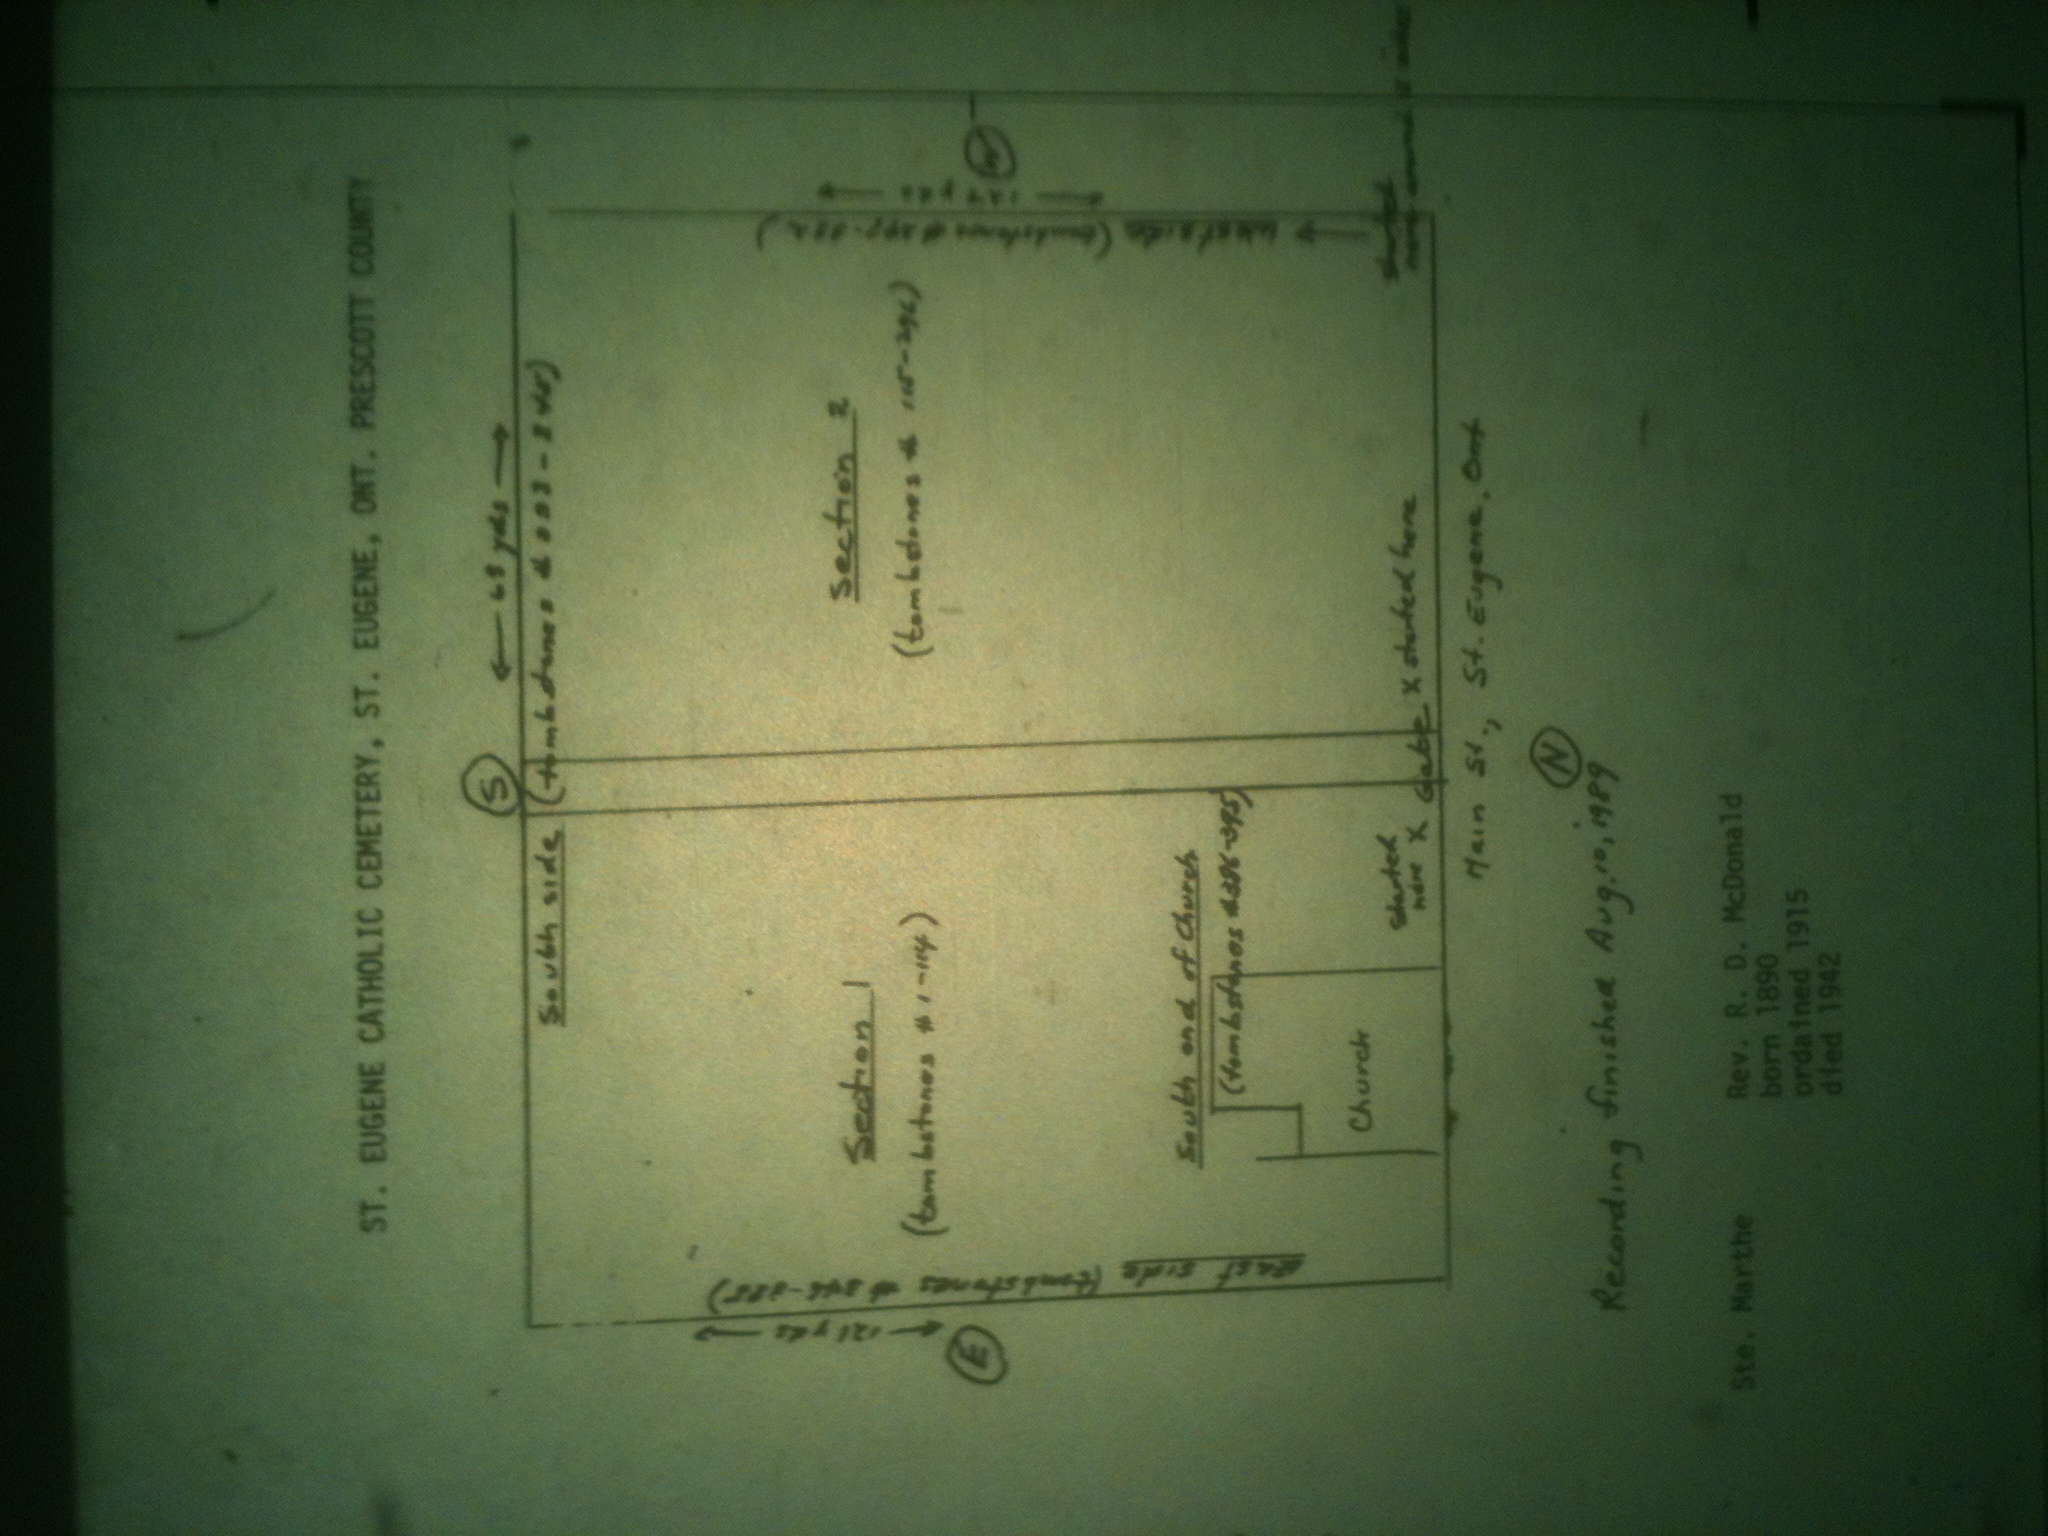 ST. EUGENE CATHOLIC CEMETERY, ST. EUGENE, ONT. PRESCOTT COUNTY
S
68 yds
South side (tombstones #
121 yds
East side (tombstones # 346-385)
E
Section 1
(tombstones # 1-114)
Section 2
(tombstones # 115-296)
West side (tombstones #
124 yds
South end of Church
(tombstones #386-395)
Church
Started
here X Gate X started here
Started
here
Main St., St. Eugene, Ont
N
Recording finished Aug. 10, 1989
Ste. Marthe Rev. R. D. McDonald
born 1890
ordained 1915
died 1942